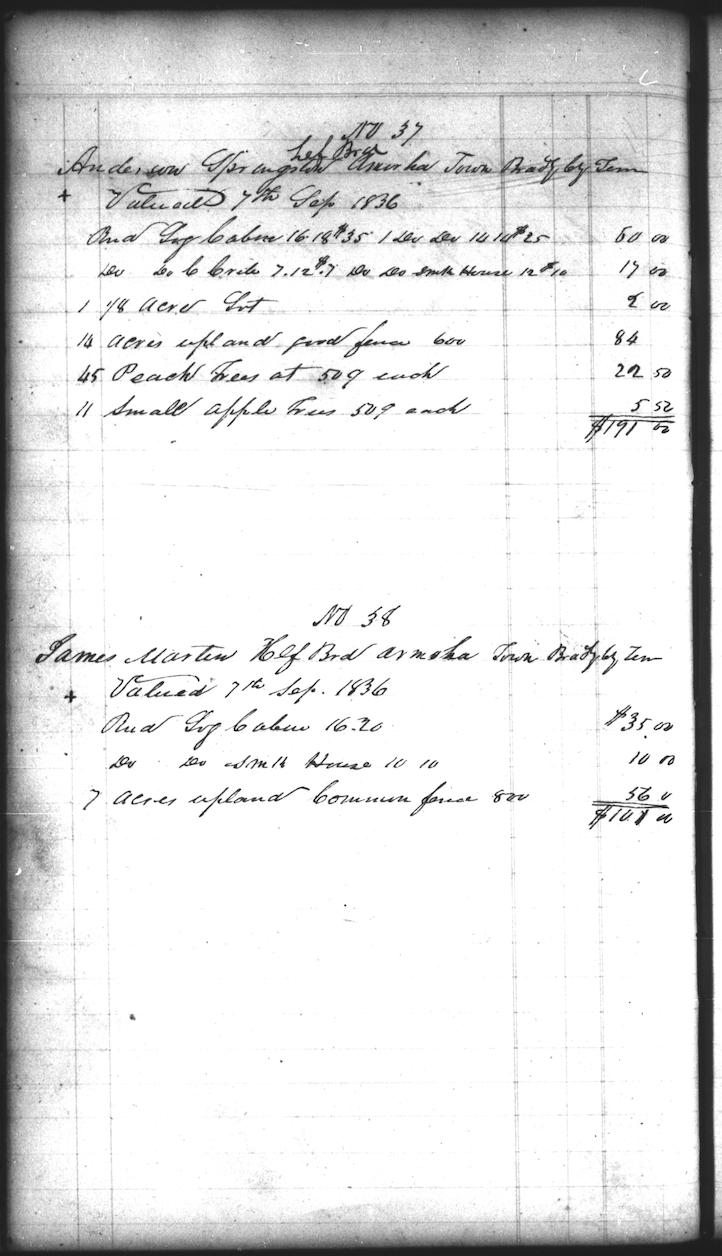 No 37
Hlf Brd
Anderson Springston Amoha Town Bradly by Tenn
+ Valued 7th Sep 1836
Rnd Log Cabin 16.18 $35 1 Do Do 14 14 $25 60 00
Do Do C Crib 7.12 $7 Do Do Smk House 12 $10 17 00
1 1/8 acre Lot 2 00
14 acres upland good fence 600 84
45 Peach Trees at 50¢ each 22 50
11 Small apple Trees 50¢ each 5 50
$191 00
No 38
James Marten Hlf Brd Armoha Town Bradly by Ten
+ Valued 7th Sep. 1836
Rnd Log Cabin 16.20 $35.00
Do Do Smk House 10 10 10 00
7 acres upland Common fence 800 56 0
$101 00